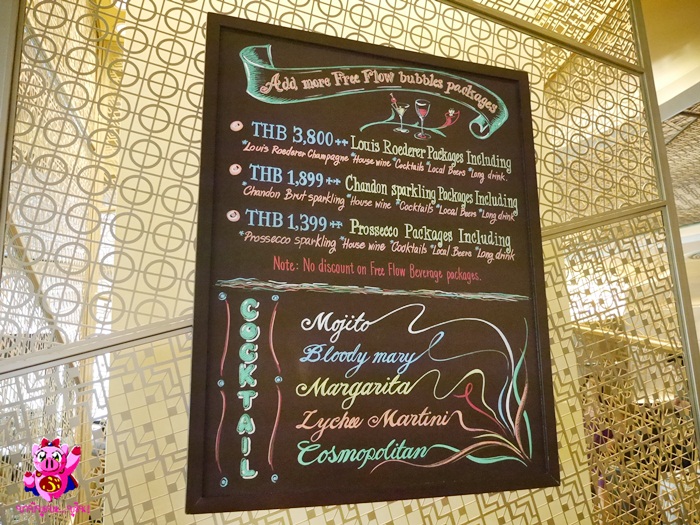 Add more Free Flow bubbles packages
THB 3,800++ Louis Roederer Packages Including
*Louis Roederer Champagne *House wine *Cocktails *Local Beers *Long drink.
THB 1,899++ Chandon sparkling Packages Including
*Chandon Brut sparkling *House wine *Cocktails *Local Beers *Long drink
THB 1,399++ Prossecco Packages Including
*Prossecco sparkling *House wine *Cocktails *Local Beers *Long drink
Note: No discount on Free Flow Beverage packages.
COCKTAIL
Mojito
Bloody mary
Margarita
Lychee Martini
Cosmopolitan